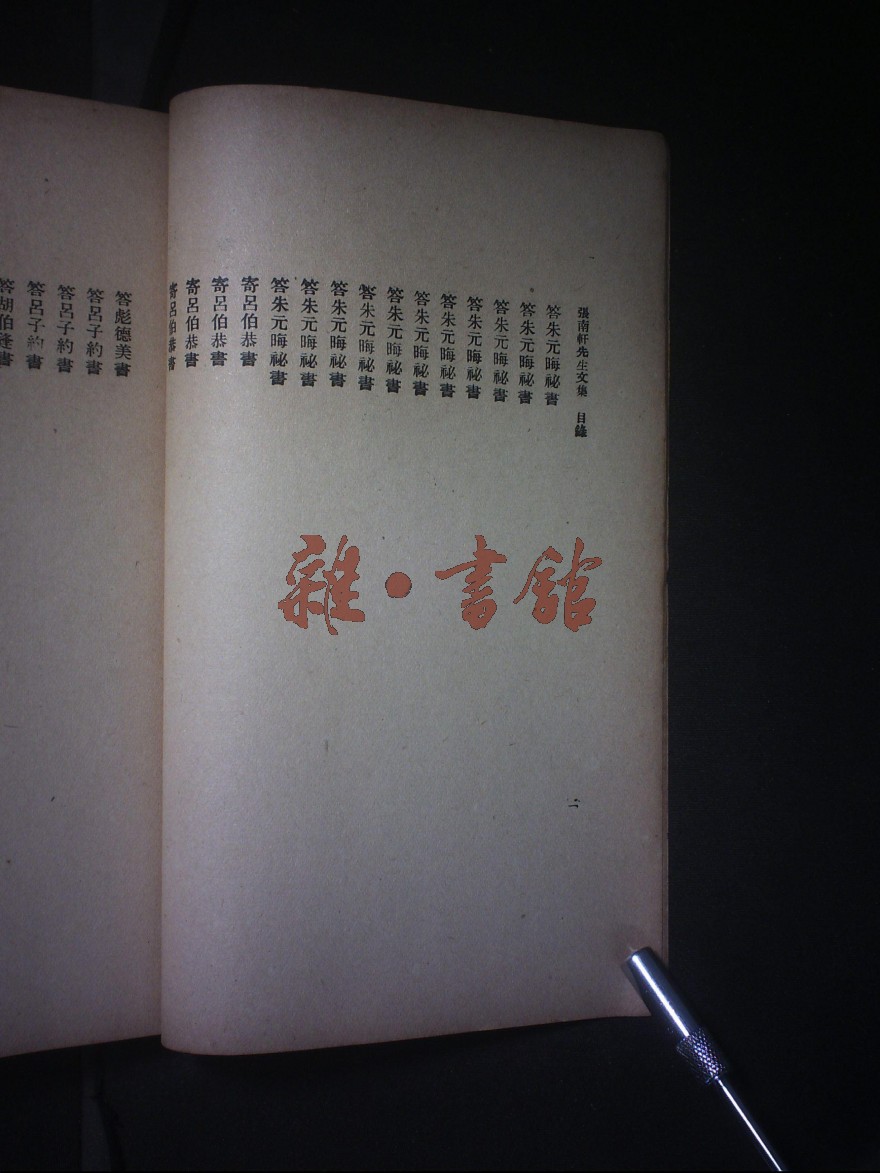 張南軒先生文集 目錄
答朱元晦祕書
答朱元晦祕書
答朱元晦祕書
答朱元晦祕書
答朱元晦祕書
答朱元晦祕書
答朱元晦祕書
答朱元晦祕書
答朱元晦祕書
答朱元晦祕書
答朱元晦祕書
寄呂伯恭書
寄呂伯恭書
寄呂伯恭書
寄呂伯恭書
二
答彪德美書
答呂子約書
答呂子約書
答呂子約書
答胡伯逢書
雜·書館